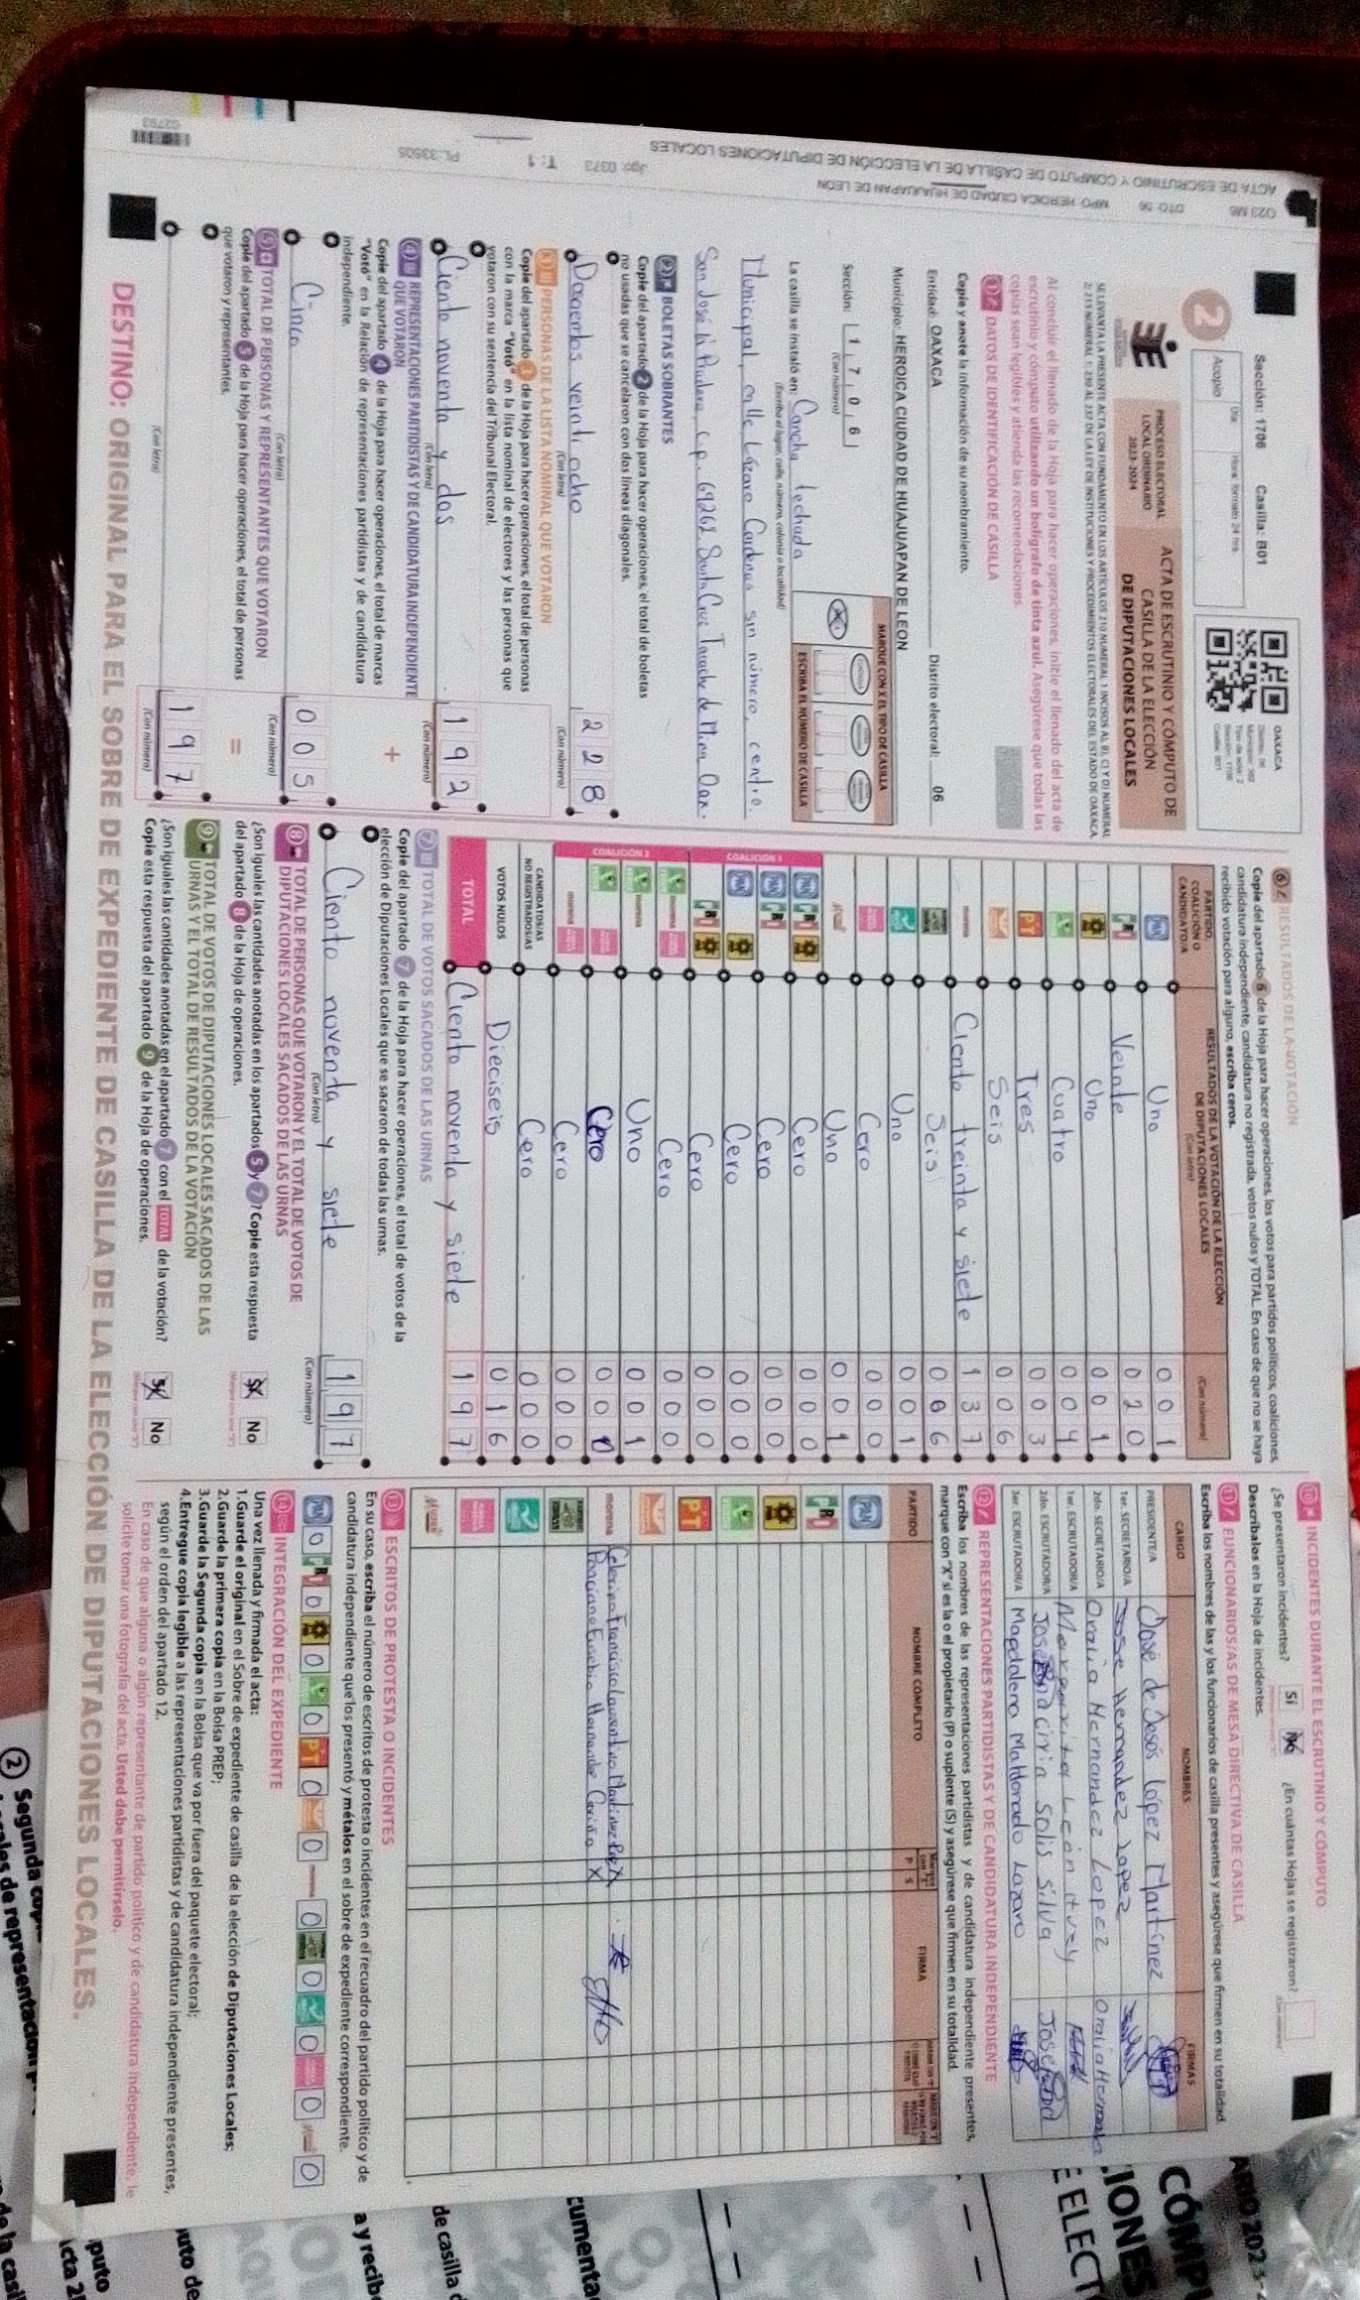 Sección: 1706 Casilla: B01
2
Acopio
Día
Hora: formato 24 hrs.
OAXACA
PROCESO ELECTORAL
LOCAL ORDINARIO
2023-2024
ACTA DE ESCRUTINIO Y CÓMPUTO DE
CASILLA DE LA ELECCIÓN
DE DIPUTACIONES LOCALES
Al concluir el llenado de la Hoja para hacer operaciones, inicie el llenado del acta de
escrutinio y cómputo utilizando un bolígrafo de tinta azul. Asegúrese que todas las
copias sean legibles y atienda las recomendaciones.
1 DATOS DE IDENTIFICACIÓN DE CASILLA
Copie y anote la información de su nombramiento.
Entidad: OAXACA Distrito electoral: 06
Municipio: HEROICA CIUDAD DE HUAJUAPAN DE LEON
Sección: 1 7 0 6
(Con número)
MARQUE CON X EL TIPO DE CASILLA
ESCRIBA EL NÚMERO DE CASILLA
La casilla se instaló en: Cancha techada
(Escriba el lugar, calle, número, colonia o localidad)
Municipal, calle Lázaro Cardenas sin número, centro.
2 BOLETAS SOBRANTES
Copie del apartado 2 de la Hoja para hacer operaciones, el total de boletas
no usadas que se cancelaron con dos líneas diagonales.
Doscientos veintiocho 2 2 8
(Con letra) (Con número)
3 PERSONAS DE LA LISTA NOMINAL QUE VOTARON
Copie del apartado 3 de la Hoja para hacer operaciones, el total de personas
con la marca "Votó" en la lista nominal de electores y las personas que
votaron con su sentencia del Tribunal Electoral.
Ciento noventa y dos 1 9 2
(Con letra) (Con número)
4 REPRESENTACIONES PARTIDISTAS Y DE CANDIDATURA INDEPENDIENTE
QUE VOTARON
+
Copie del apartado 4 de la Hoja para hacer operaciones, el total de marcas
"Votó" en la Relación de representaciones partidistas y de candidatura
independiente.
Cinco 0 0 5
(Con letra) (Con número)
5 TOTAL DE PERSONAS Y REPRESENTANTES QUE VOTARON
=
Copie del apartado 5 de la Hoja para hacer operaciones, el total de personas
que votaron y representantes.
1 9 7
(Con letra) (Con número)
6 RESULTADOS DE LA VOTACIÓN
Copie del apartado 6 de la Hoja para hacer operaciones, los votos para partidos políticos, coaliciones,
candidatura independiente, candidatura no registrada, votos nulos y TOTAL. En caso de que no se haya
recibido votación para alguno, escriba ceros.
PARTIDO,
COALICIÓN O
CANDIDATO/A
RESULTADOS DE LA VOTACIÓN DE LA ELECCIÓN
DE DIPUTACIONES LOCALES
(Con letra) (Con número)
PAN Uno 0 0 1
PRI Veinte 0 2 0
Uno 0 0 1
Cuatro 0 0 4
PT Tres 0 0 3
Seis 0 0 6
morena Ciento treinta y siete 1 3 7
Seis 0 0 6
Uno 0 0 1
Cero 0 0 0
Uno 0 0 1
COALICIÓN 1
PAN PRI Cero 0 0 0
PAN PRI Cero 0 0 0
PAN Cero 0 0 0
PRI Cero 0 0 0
COALICIÓN 2
morena Cero 0 0 0
morena Uno 0 0 1
Cero 0 0 0
morena Cero 0 0 0
CANDIDATOS/AS
NO REGISTRADOS/AS Cero 0 0 0
VOTOS NULOS Dieciseis 0 1 6
TOTAL Ciento noventa y siete 1 9 7
7 TOTAL DE VOTOS SACADOS DE LAS URNAS
Copie del apartado 7 de la Hoja para hacer operaciones, el total de votos de la
elección de Diputaciones Locales que se sacaron de todas las urnas.
Ciento noventa y siete 1 9 7
(Con letra) (Con número)
8 TOTAL DE PERSONAS QUE VOTARON Y EL TOTAL DE VOTOS DE
DIPUTACIONES LOCALES SACADOS DE LAS URNAS
¿Son iguales las cantidades anotadas en los apartados 5 y 7? Copie esta respuesta
del apartado 8 de la Hoja de operaciones.
Sí No
9 TOTAL DE VOTOS DE DIPUTACIONES LOCALES SACADOS DE LAS
URNAS Y EL TOTAL DE RESULTADOS DE LA VOTACIÓN
¿Son iguales las cantidades anotadas en el apartado 7 con el TOTAL de la votación?
Copie esta respuesta del apartado 9 de la Hoja de operaciones.
Sí No
10 INCIDENTES DURANTE EL ESCRUTINIO Y CÓMPUTO
¿Se presentaron incidentes? Sí No ¿En cuántas Hojas se registraron?
Descríbalos en la Hoja de incidentes.
11 FUNCIONARIOS/AS DE MESA DIRECTIVA DE CASILLA
Escriba los nombres de las y los funcionarios de casilla presentes y asegúrese que firmen en su totalidad.
CARGO NOMBRES FIRMAS
PRESIDENTE/A José de Jesús López Martínez
1er. SECRETARIO/A Jose Hernandez Lopez
2do. SECRETARIO/A Oralia Hernandez Lopez Oralia Hernandez
1er. ESCRUTADOR/A Margarita León
2do. ESCRUTADOR/A Josefina Ciria Solis Silva
3er. ESCRUTADOR/A Magdaleno Maldonado Lazaro
12 REPRESENTACIONES PARTIDISTAS Y DE CANDIDATURA INDEPENDIENTE
Escriba los nombres de las representaciones partidistas y de candidatura independiente presentes,
marque con "X" si es la o el propietario (P) o suplente (S) y asegúrese que firmen en su totalidad.
PARTIDO NOMBRE COMPLETO P S FIRMA
PAN
PRI
PT
morena
13 ESCRITOS DE PROTESTA O INCIDENTES
En su caso, escriba el número de escritos de protesta o incidentes en el recuadro del partido político y de
candidatura independiente que los presentó y métalos en el sobre de expediente correspondiente.
0 0 0 0 0 0 0 0 0 0 0
14 INTEGRACIÓN DEL EXPEDIENTE
Una vez llenada y firmada el acta:
1. Guarde el original en el Sobre de expediente de casilla de la elección de Diputaciones Locales;
2. Guarde la primera copia en la Bolsa PREP;
3. Guarde la Segunda copia en la Bolsa que va por fuera del paquete electoral;
4. Entregue copia legible a las representaciones partidistas y de candidatura independiente presentes,
según el orden del apartado 12.
En caso de que alguna o algún representante de partido político y de candidatura independiente, le
solicite tomar una fotografía del acta, Usted debe permitírselo.
DESTINO: ORIGINAL PARA EL SOBRE DE EXPEDIENTE DE CASILLA DE LA ELECCIÓN DE DIPUTACIONES LOCALES.
ACTA DE ESCRUTINIO Y CÓMPUTO DE CASILLA DE LA ELECCIÓN DE DIPUTACIONES LOCALES
DTO: 06 MPO: HEROICA CIUDAD DE HUAJUAPAN DE LEON
Jgo: 0373 T: 1 PL:33505
02793
CÓMP
IONES
E ELECT
2 Segunda